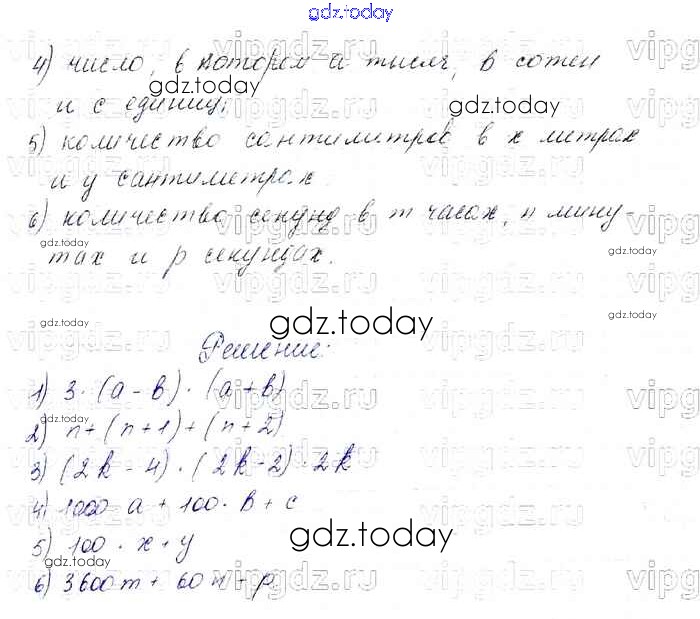 gdz.today
4) число, в котором a тысяч, в сотен
gdz.today gdz.today
и с единиц;
5) количество сантиметров в x метрах
и y сантиметрах
6) количество секунд в m часах, n мину-
gdz.today gdz.today
тах и p секундах.
gdz.today gdz.today gdz.today
Решение:
1) 3·(a-b)·(a+b)
2) n+(n+1)+(n+2)
3) (2k-4)·(2k-2)·2k
4) 1000 a+100·b+c
gdz.today gdz.today
5) 100·x+y
gdz.today
6) 3600m+60n+p